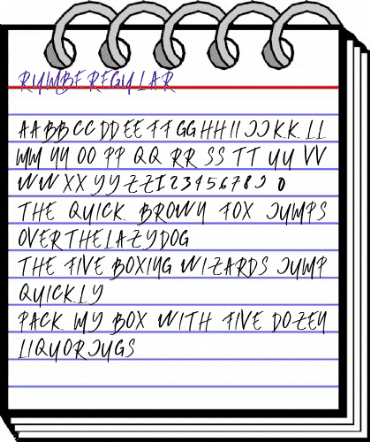 RUMBE REGULAR
AABBCCDDEEFFGGHHIIJJKKLL
MMNNOOPPQQRRSSTTUUVV
WWXXYYZZ1234567890
THE QUICK BROWN FOX JUMPS
OVERTHELAZYDOG
THE FIVE BOXING WIZARDS JUMP
QUICKLY
PACK MY BOX WITH FIVE DOZEN
LIQUORJUGS